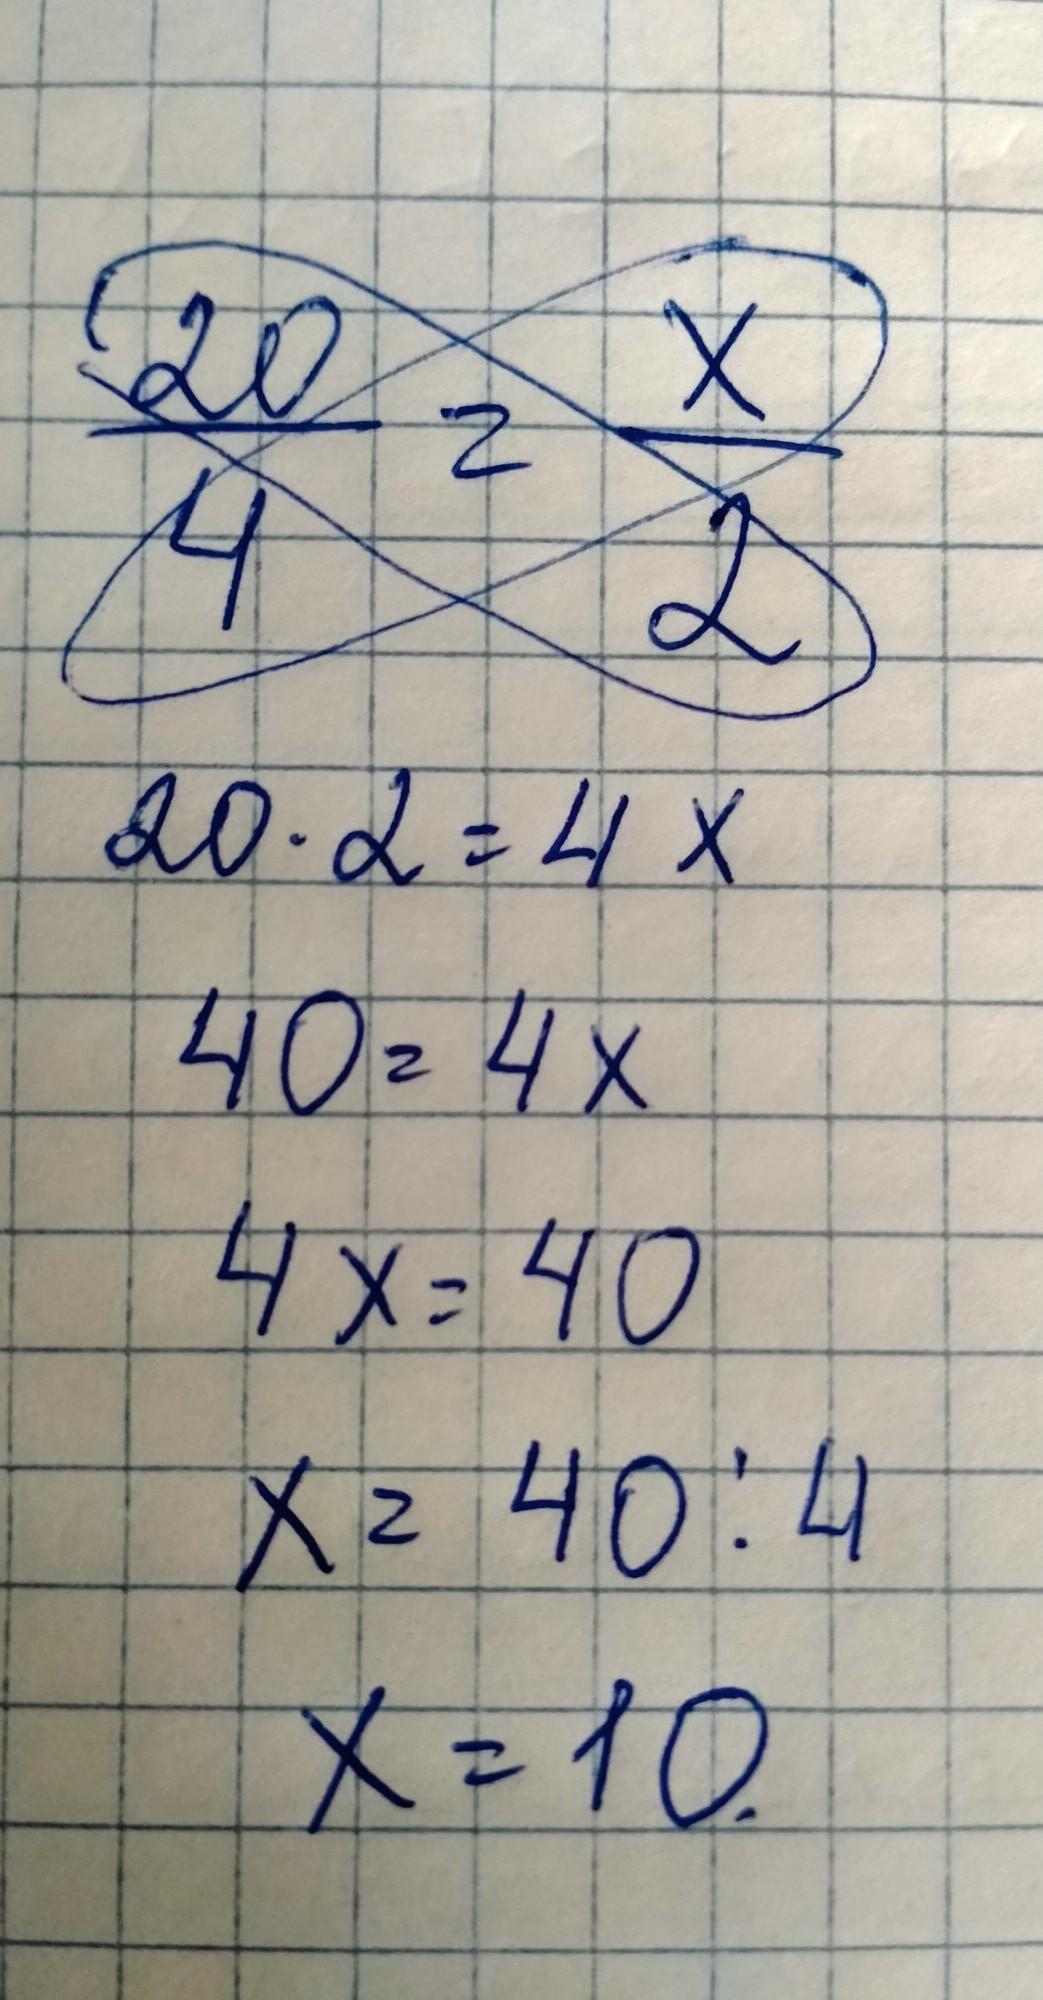 20/4 = x/2
20·2=4x
40=4x
4x=40
x=40:4
x=10.